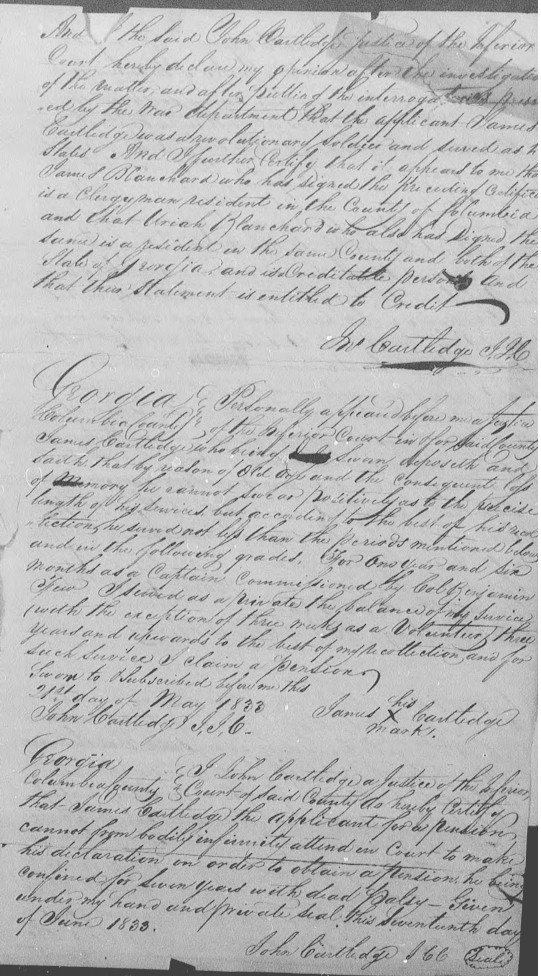 And I the said John Cartledge Justice of the Inferior
Court hereby declare my opinion after the investigation
of the matter, and after putting the interrogatories
ed by the War department that the applicant James
Cartledge was a revolutionary Soldier and served as he
States And I further Certify that it appears to me that
James Blanchard who has signed the preceding Certificate
is a Clergyman resident in the County of Columbia
and that Uriah Blanchard who also has signed the
same is a resident in the same County and both of the
State of Georgia and is Creditable persons and
that their Statement is entitled to Credit
Jno Cartledge J.I.C
Georgia } Personally appeared before me a Justice
Columbia County } of the Inferior Court in & for said County
James Cartledge who being sworn deposeth and
saith that by reason of Old age and the consequent loss
of memory he cannot swear positively as to the precise
length of his services but according to the best of his recol
lection, he served not less than the periods mentioned below
and in the following grades. For one year and six
months as a Captain Commissioned by Col Benjamin
Few I served as a private the balance of my service
(with the exception of three weeks) as a Volunteer, three
years and upwards to the best of my recollection, and for
such service I claim a Pension
Sworn to & subscribed before me this
21st day of May 1833
James his X mark Cartledge
John Cartledge J.I.C.
Georgia } I John Cartledge a Justice of the Inferior
Columbia County } Court of said County do hereby Certify
that James Cartledge the applicant for a pension
cannot from bodily infirmity attend in Court to make
his declaration in order to obtain a Pension, he being
confined for seven years with dead Palsy - Given
under my hand and private seal this Seventeenth day
of June 1833.
John Cartledge J I C Seal